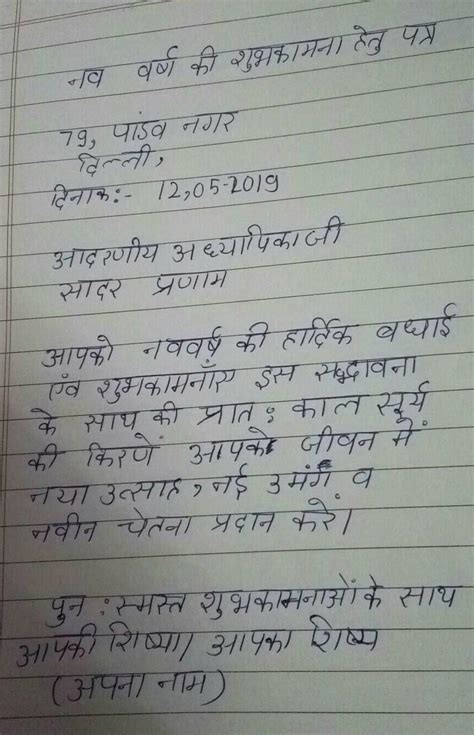 नव वर्ष की शुभकामना हेतु पत्र
79, पांडव नगर
दिल्ली,
दिनाक:- 12,05-2019
आदरणीय अध्यापिका जी
सादर प्रणाम
आपको नववर्ष की हार्दिक बधाई
एंव शुभकामनाँए इस सद्भावना
के साथ की प्रात: काल सूर्य
की किरणें आपको जीवन में
नया उत्साह, नई उमंग व
नवीन चेतना प्रदान करें।
पुन: स्मस्त शुभकामनाओं के साथ
आपकी शिष्या/ आपका शिष्य
(अपना नाम)